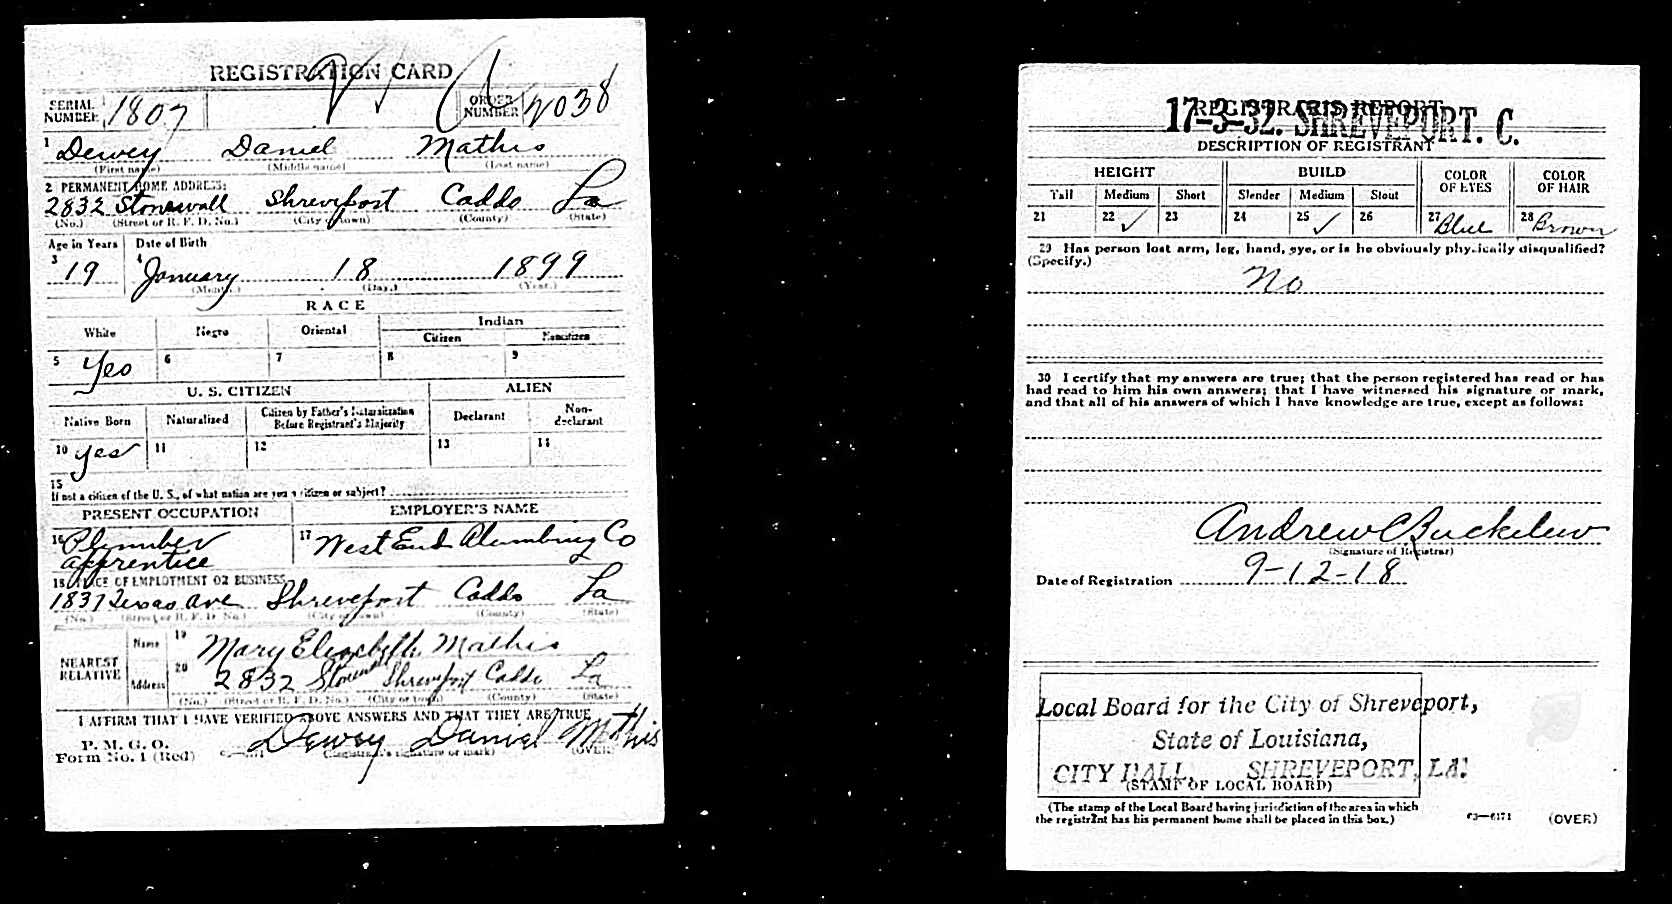 REGISTRATION CARD
SERIAL NUMBER 1807 ORDER NUMBER 2038
1 Dewey Daniel Mathis
(First name) (Middle name) (Last name)
2 PERMANENT HOME ADDRESS:
2832 Stonewall Shreveport Caddo La
(No.) (Street or R. F. D. No.) (City or town) (County) (State)
Age in Years Date of Birth
3 19 4 January 18 1899
(Month.) (Day.) (Year.)
RACE
White Negro Oriental Indian
Citizen Noncitizen
5 Yes 6 7 8 9
U. S. CITIZEN ALIEN
Native Born Naturalized Citizen by Father's Naturalization Before Registrant's Majority Declarant Non-declarant
10 yes 11 12 13 14
15
If not a citizen of the U. S., of what nation are you a citizen or subject?
PRESENT OCCUPATION EMPLOYER'S NAME
16 Plumber apprentice 17 West End Plumbing Co
18 PLACE OF EMPLOYMENT OR BUSINESS
1837 Texas Ave Shreveport Caddo La
(No.) (Street or R. F. D. No.) (City or town) (County) (State)
NEAREST RELATIVE Name 19 Mary Elizabeth Mathis
Address 20 2832 Stonewall Shreveport Caddo La
(No.) (Street or R. F. D. No.) (City or town) (County) (State)
I AFFIRM THAT I HAVE VERIFIED ABOVE ANSWERS AND THAT THEY ARE TRUE
P. M. G. O.
Form No. 1 (Red) Dewey Daniel Mathis
(Registrant's signature or mark) (OVER)
REGISTRAR'S REPORT
17-3-32. SHREVEPORT. C.
DESCRIPTION OF REGISTRANT
HEIGHT BUILD COLOR OF EYES COLOR OF HAIR
Tall Medium Short Slender Medium Stout
21 22 ✓ 23 24 25 ✓ 26 27 Blue 28 Brown
29 Has person lost arm, leg, hand, eye, or is he obviously physically disqualified?
(Specify.)
No
30 I certify that my answers are true; that the person registered has read or has
had read to him his own answers; that I have witnessed his signature or mark,
and that all of his answers of which I have knowledge are true, except as follows:
Andrew C Buckelew
(Signature of Registrar)
Date of Registration 9-12-18
Local Board for the City of Shreveport,
State of Louisiana,
CITY HALL, SHREVEPORT, LA.
(STAMP OF LOCAL BOARD)
(The stamp of the Local Board having jurisdiction of the area in which
the registrant has his permanent home shall be placed in this box.)
03—6171 (OVER)